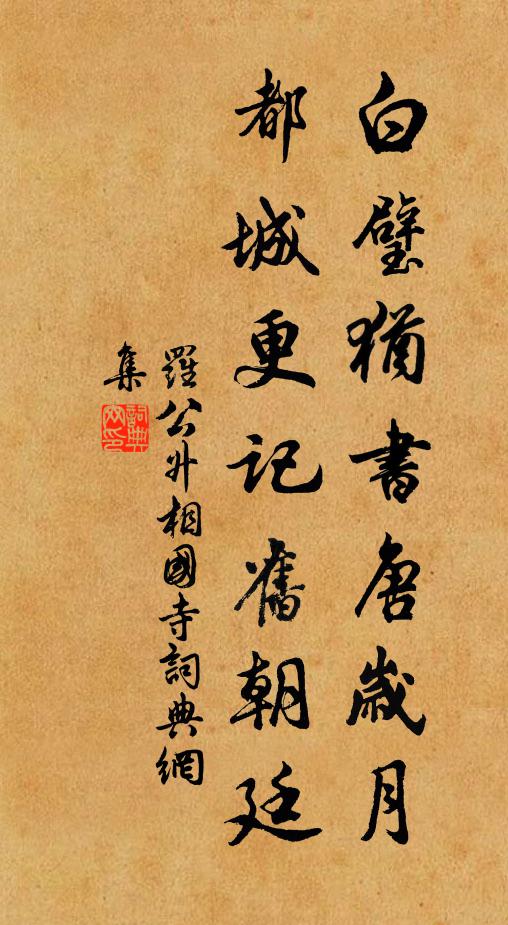 白璧猶書唐歲月
都城更記舊朝廷
羅公升相國寺詞典網
集
詞典
网印